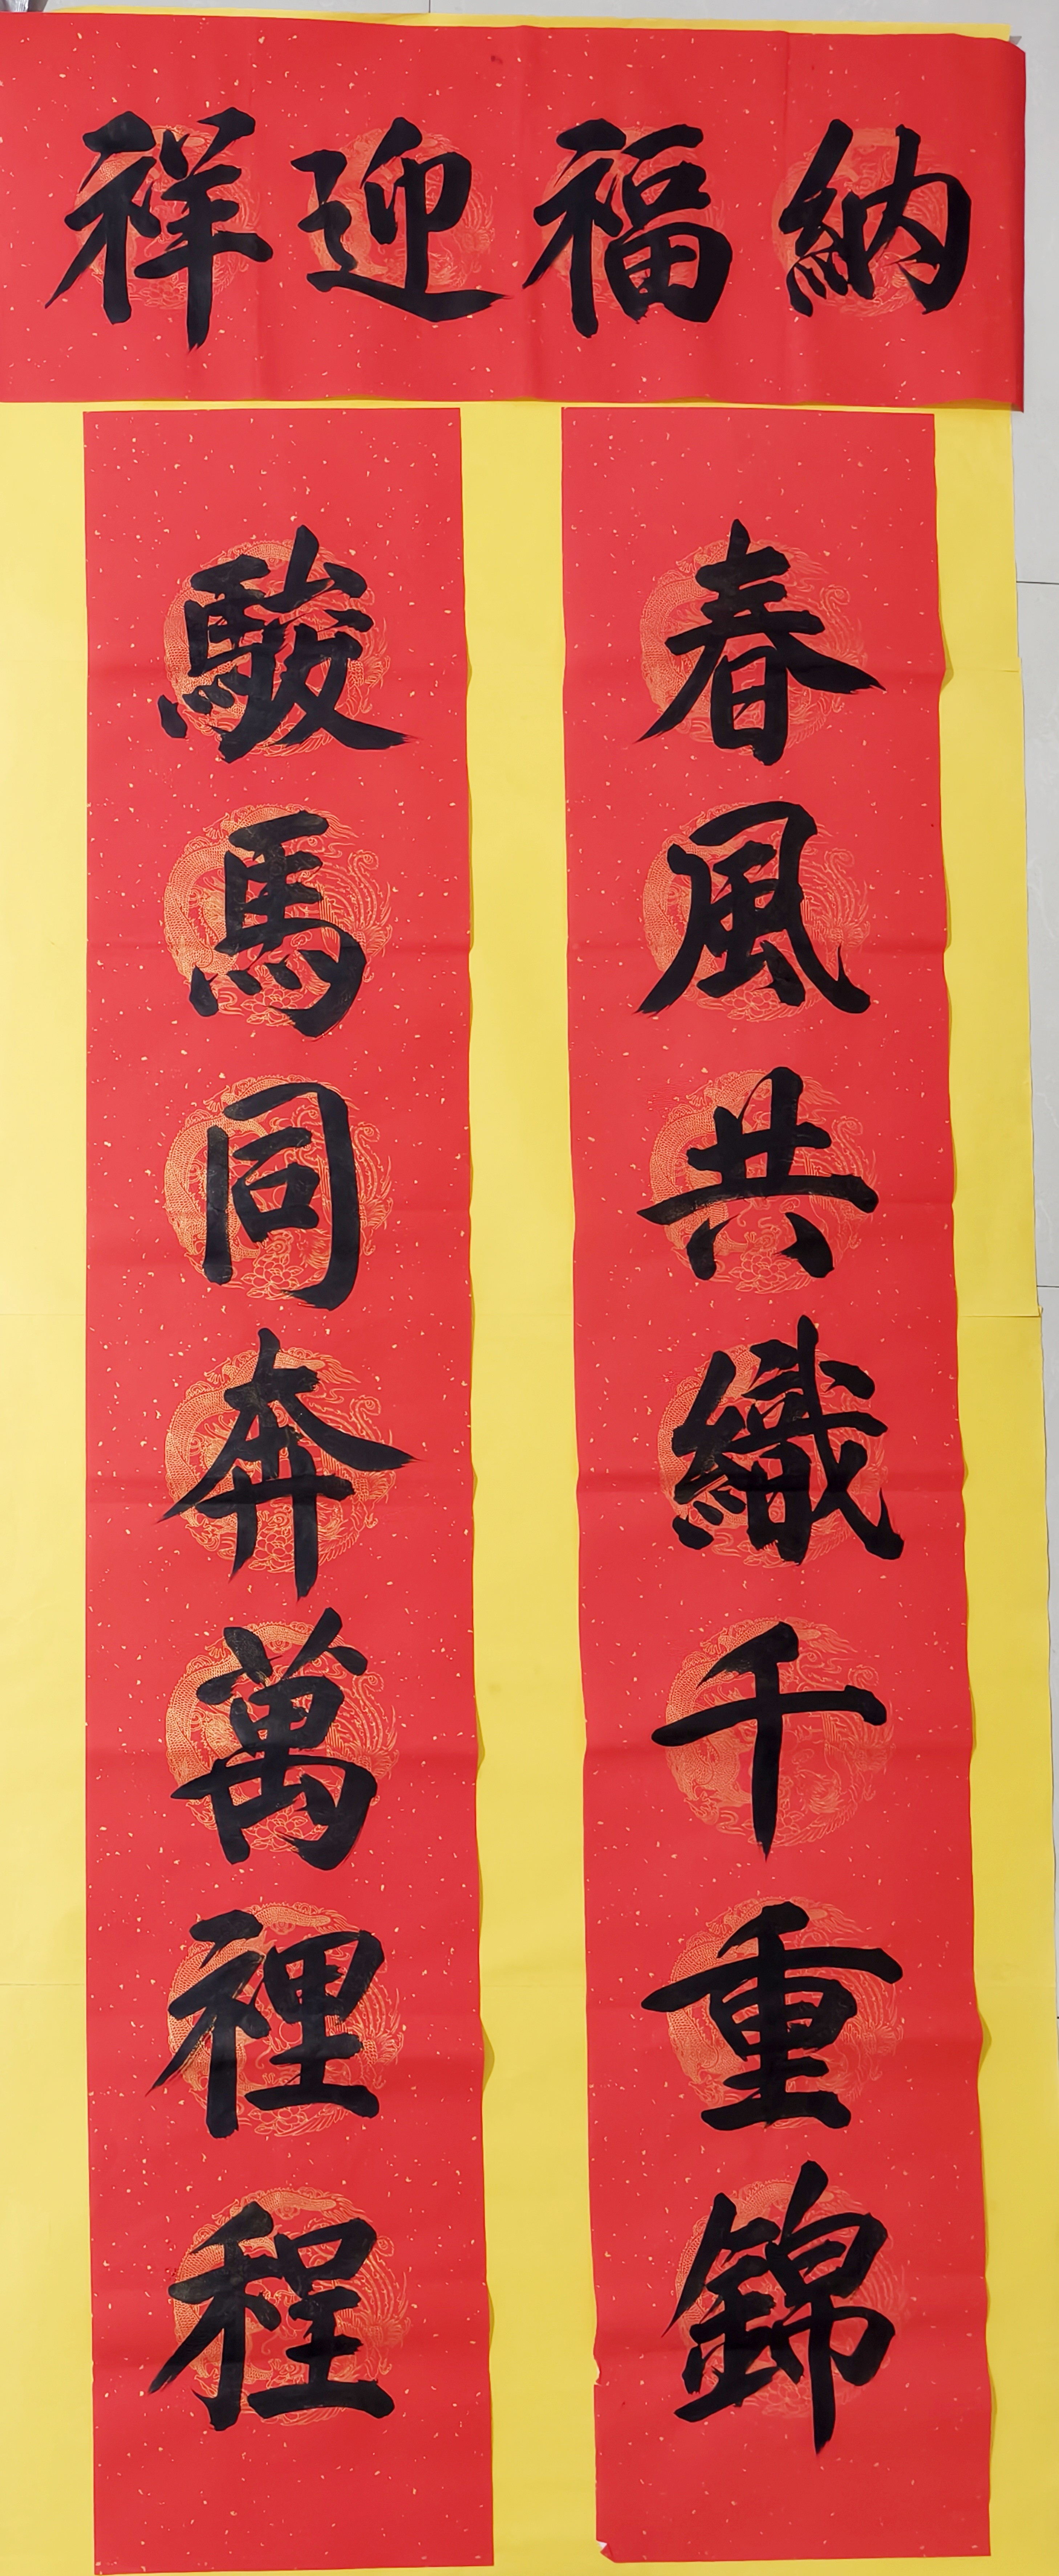 納福迎祥
春風共織千重錦
駿馬同奔萬裡程